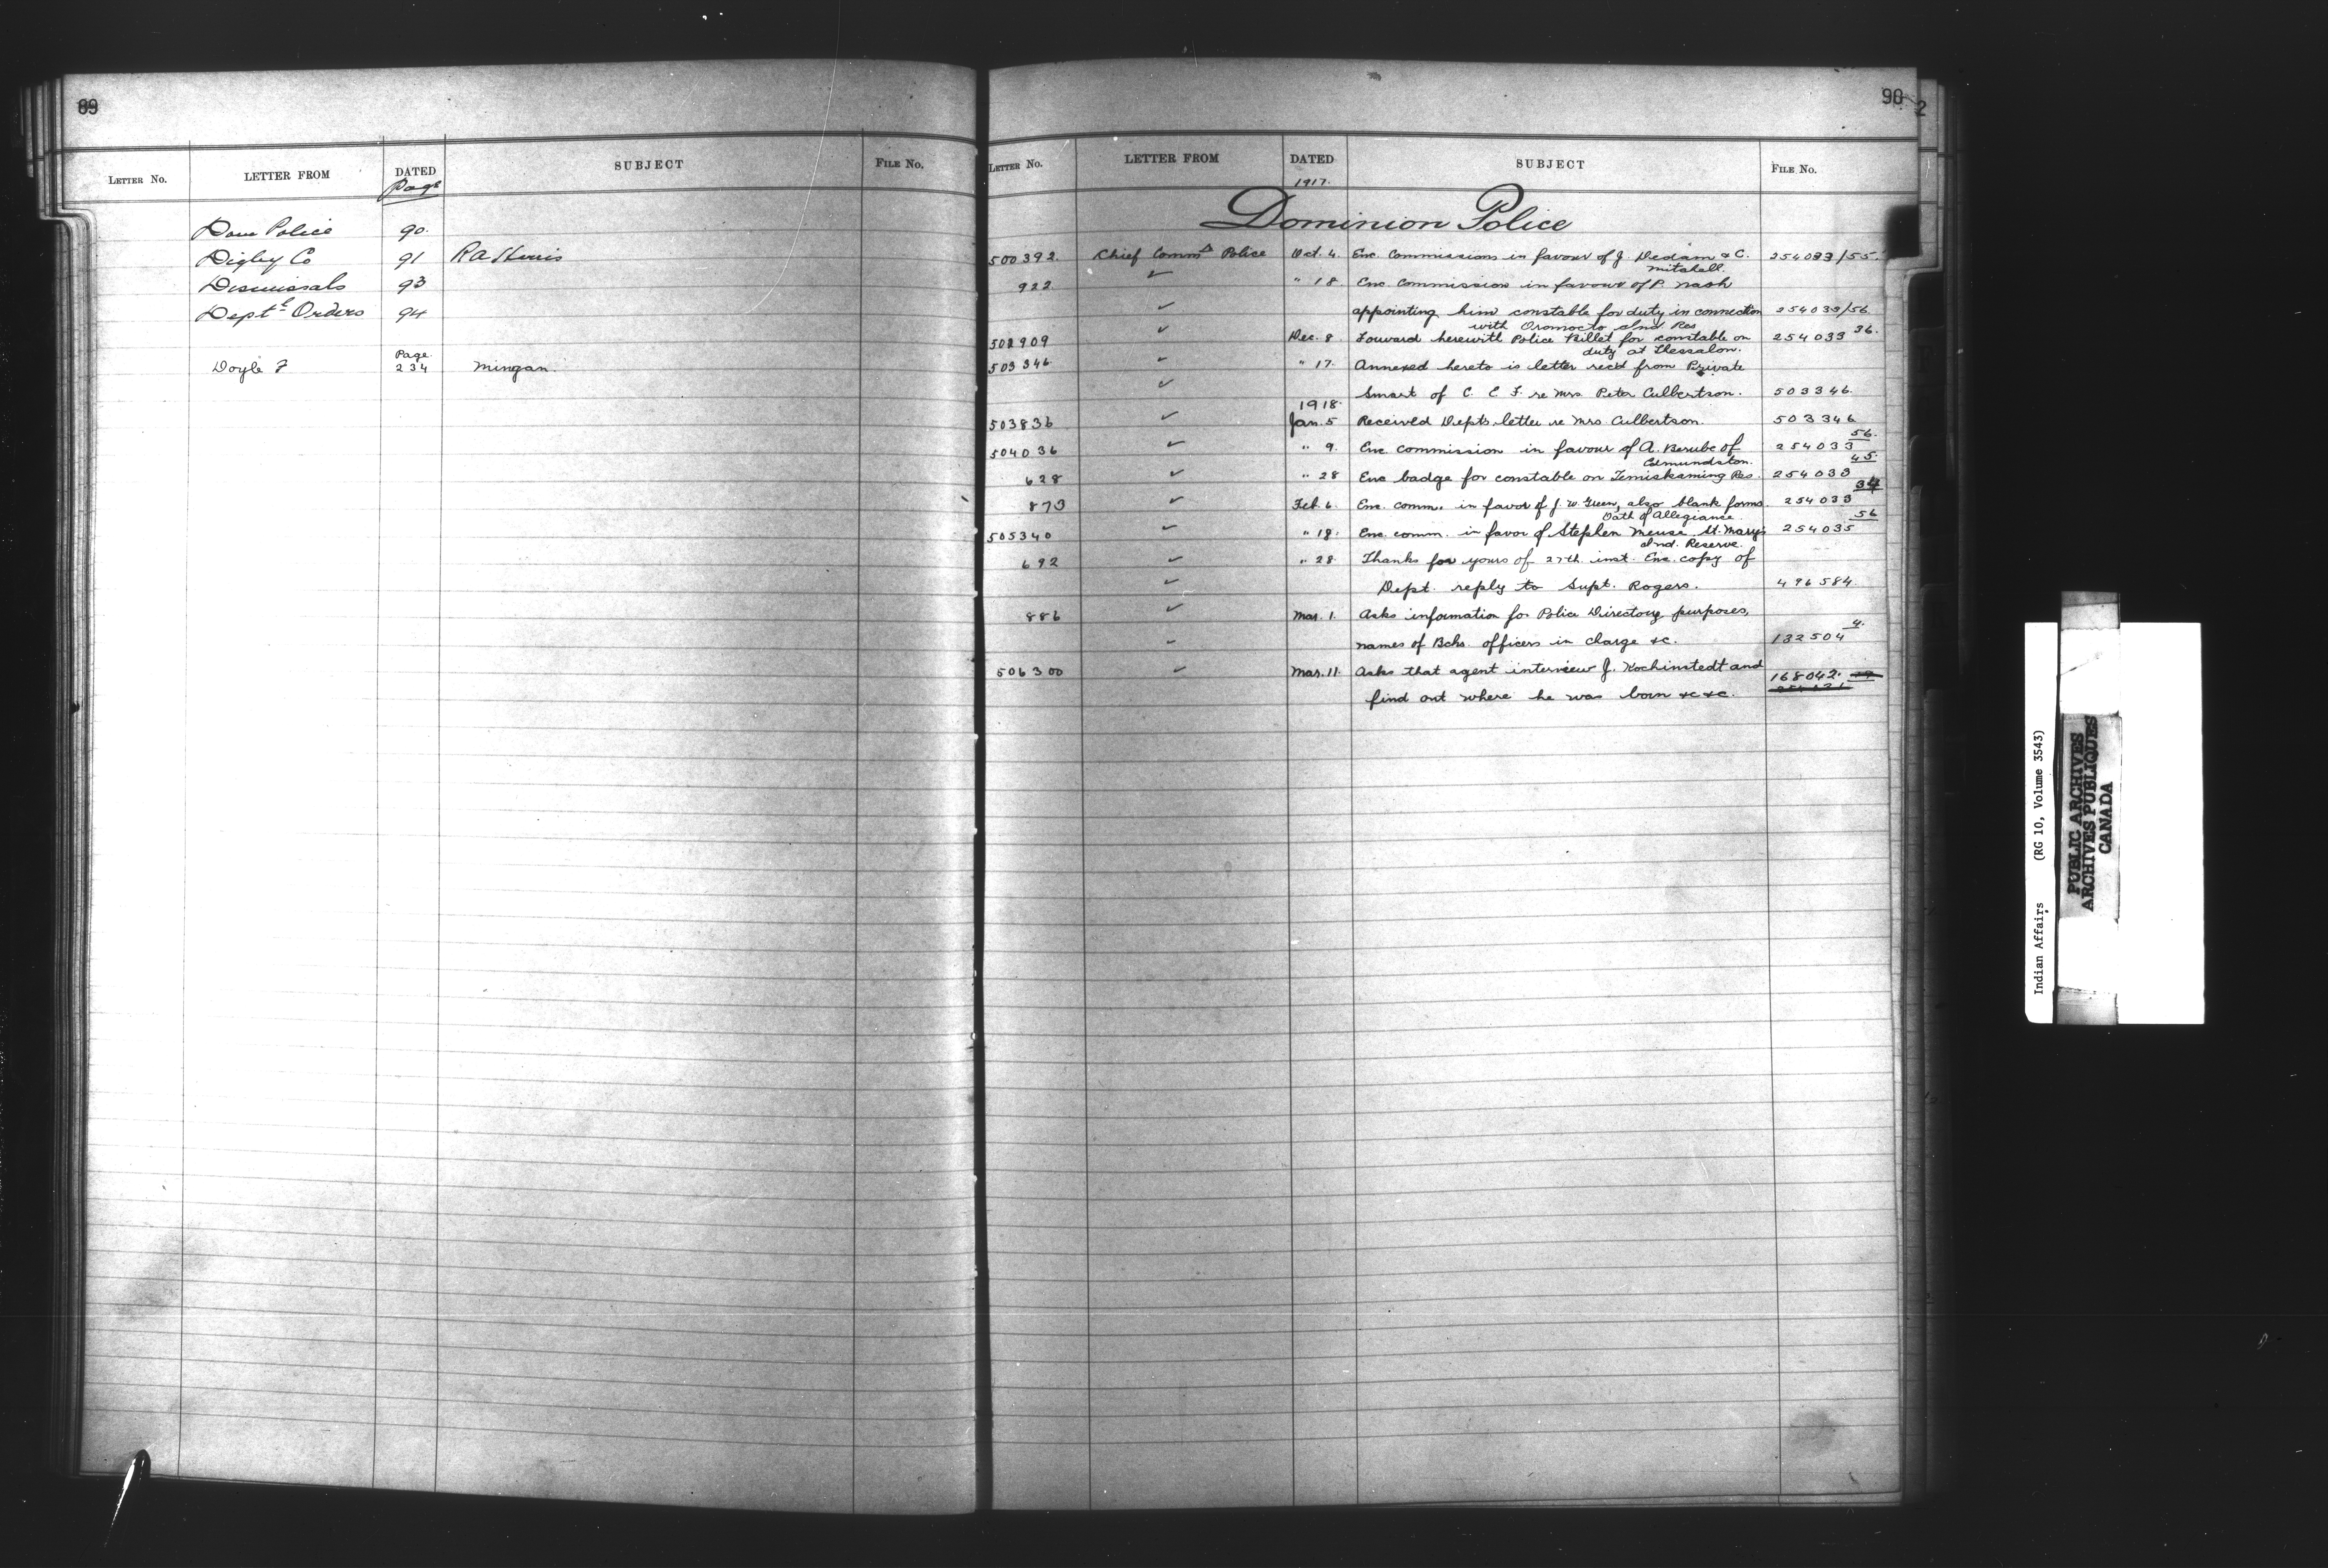 89
LETTER NO. LETTER FROM DATED SUBJECT FILE NO.
Page
Dom Police 90.
Digby Co 91 R A Harris
Dismissals 93
Deptl Orders 94
Page.
Doyle F 234 Mingan.
90 2
LETTER NO. LETTER FROM DATED SUBJECT FILE NO.
1917.
Dominion Police
500392. Chief Commr Police Oct. 4. Enc. Commissions in favour of J. Dedam & C. 254033/55.
Mitchell.
922 ✓ " 18 Enc. Commission in favour of P. Nash
✓ appointing him constable for duty in connection 254033/56
with Oromocto Ind Res
502909 ✓ Dec. 8 Forward herewith Police Billet for constable on 254033 36.
duty at Thessalon.
503346 ✓ " 17. Annexed hereto is letter recd from Private
✓ Smart of C. E. F. re Mrs. Peter Culbertson. 503346.
1918.
503836 ✓ Jan. 5 Received Depts letter re Mrs Culbertson. 503346
504036 ✓ " 9. Enc. commission in favour of A. Berube of 254033 56.
Edmundston.
628 ✓ " 28 Enc badge for constable on Temiskaming Res. 254033 45.
873 ✓ Feb. 6. Enc. comm. in favor of J. W. Green, also blank forms 254033 34
Oath of Allegiance.
505340 ✓ " 19. Enc. comm. in favor of Stephen Meuse, St. Mary's 254035 56
Ind. Reserve.
692 ✓ " 28 Thanks for yours of 27th. inst. Enc. copy of
✓ Dept. reply to Supt. Rogers. 496584.
886 ✓ Mar. 1. Asks information for Police Directory purposes,
✓ names of Bchs. officers in charge &c. 132504 4.
506300 ✓ Mar. 11. Asks that agent interview J. Kochinstedt and 168042.
find out where he was born &c &c.
Indian Affairs (RG 10, Volume 3543)
PUBLIC ARCHIVES
ARCHIVES PUBLIQUES
CANADA